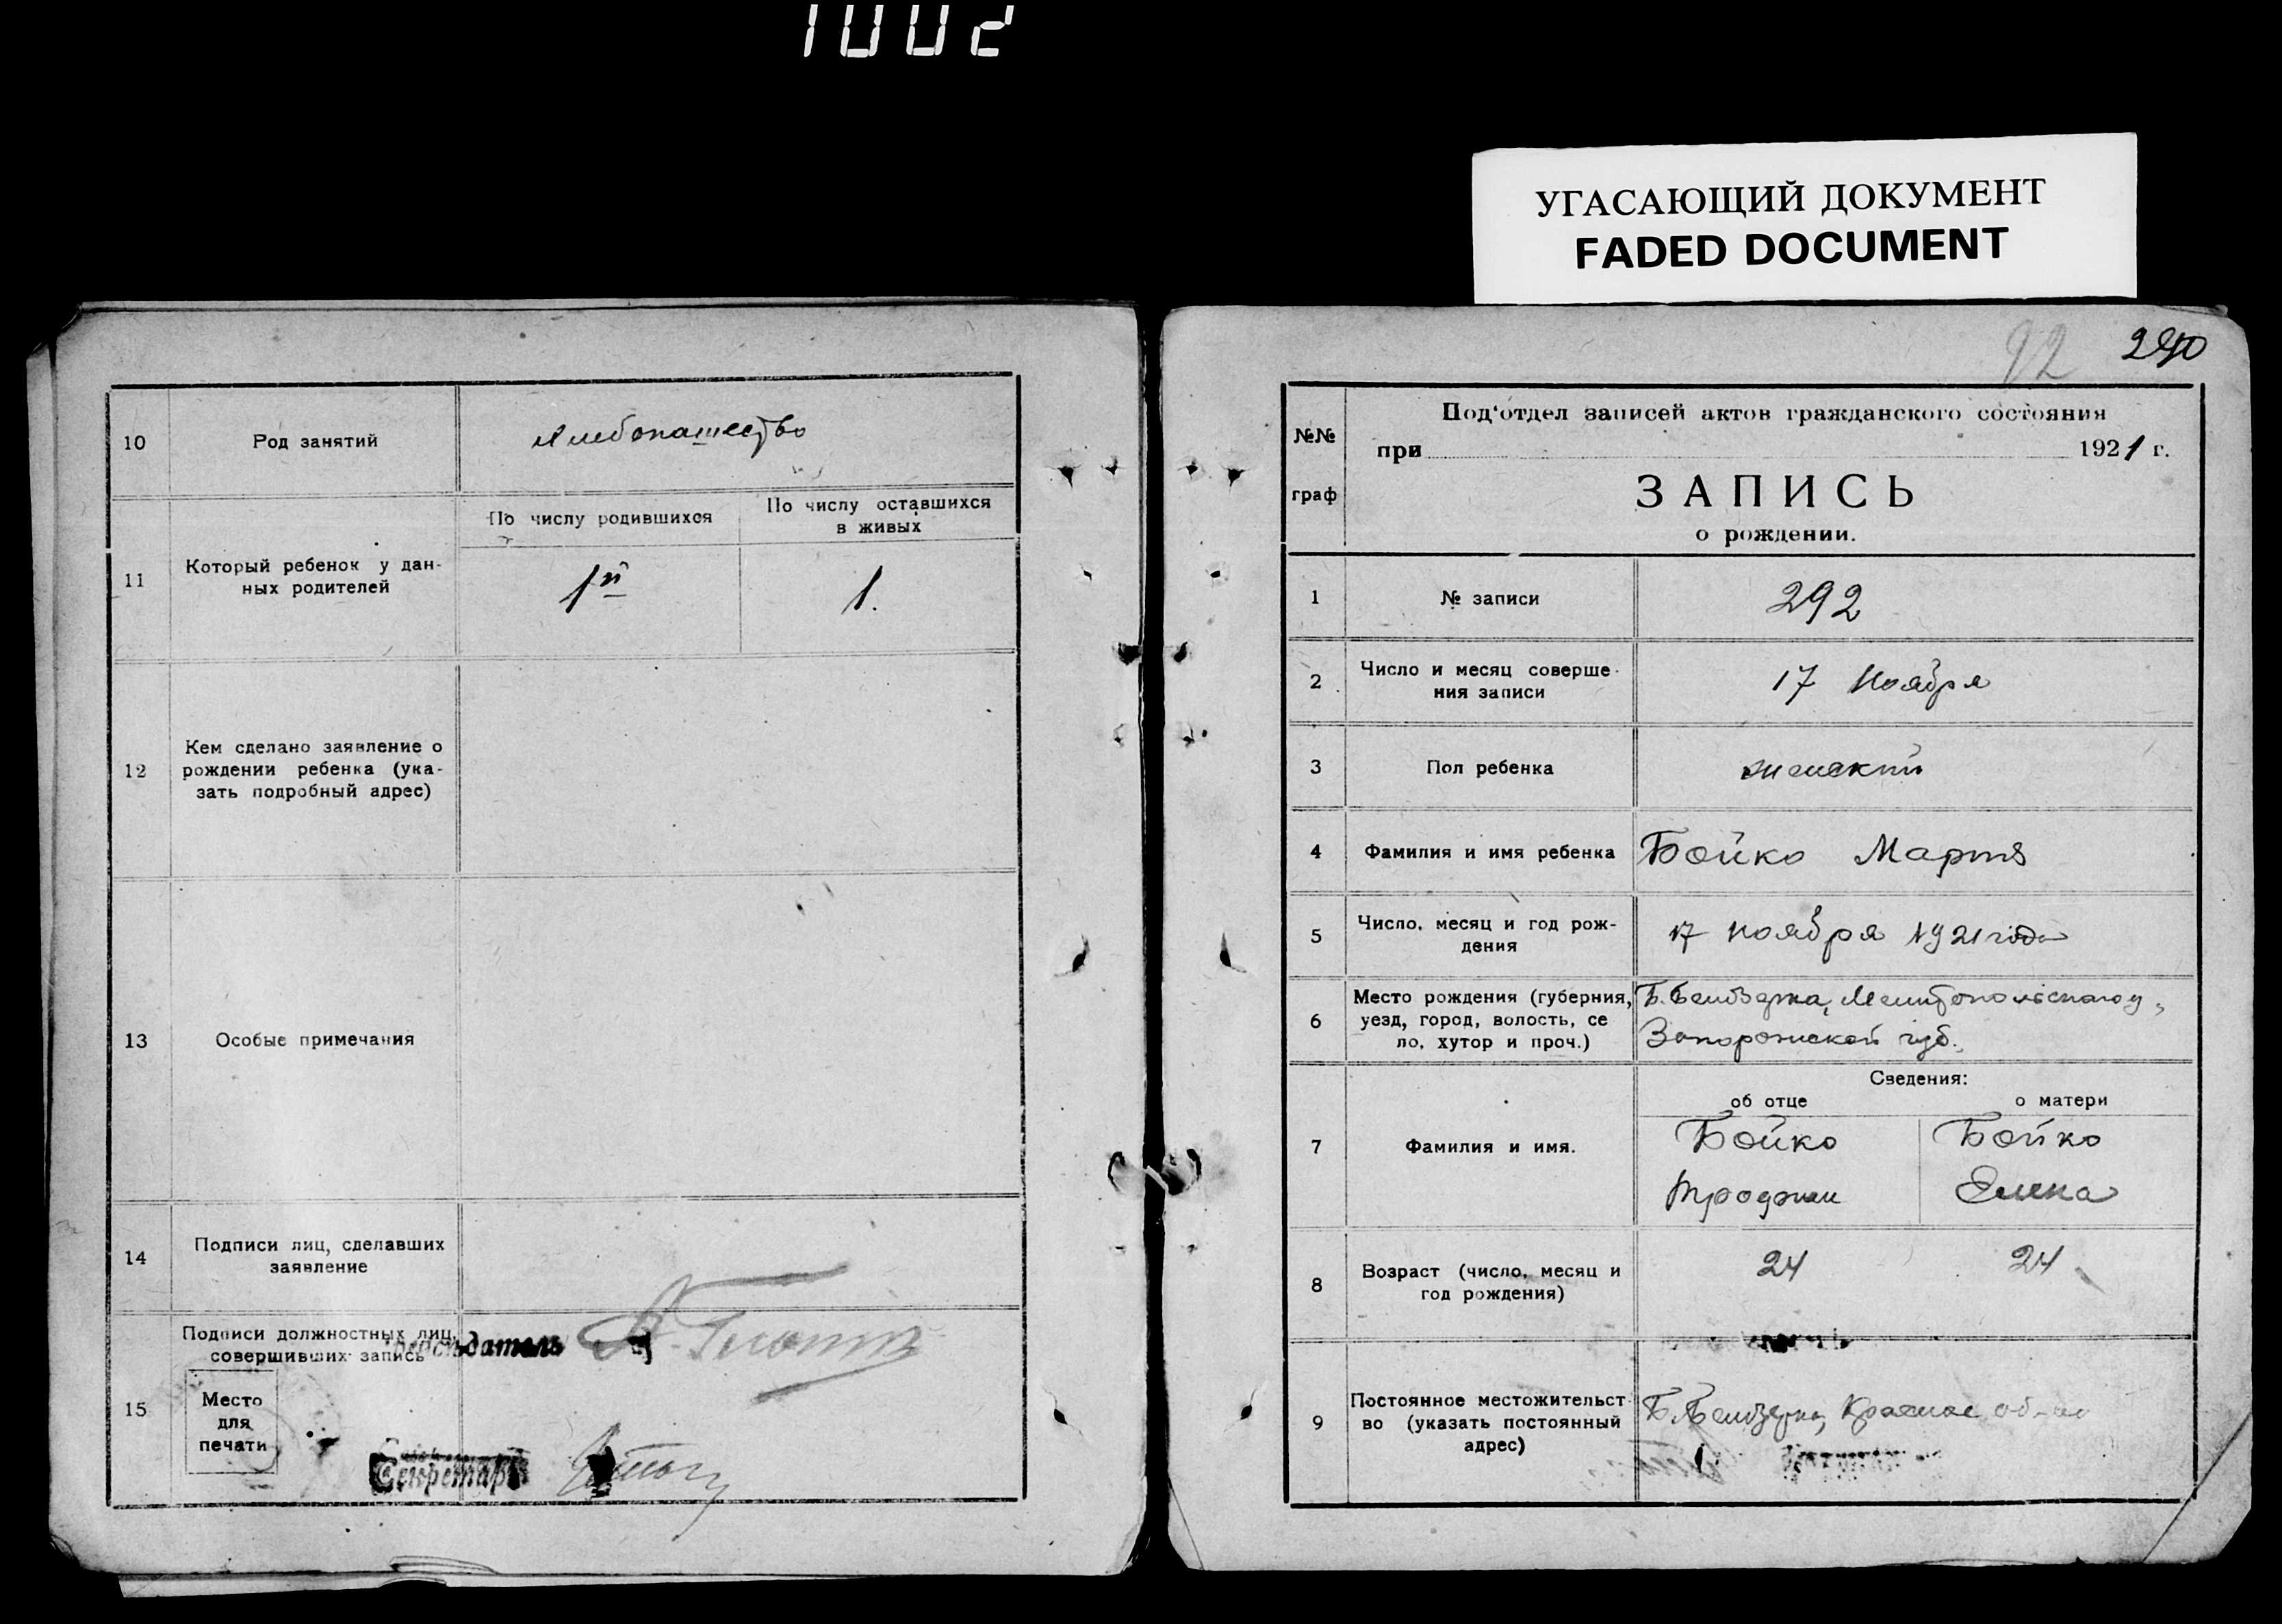 1002
УГАСАЮЩИЙ ДОКУМЕНТ
FADED DOCUMENT
10
Род занятий
хлебопашество
11
Который ребенок у дан-
ных родителей
По числу родившихся
По числу оставшихся
в живых
1й
1.
12
Кем сделано заявление о
рождении ребенка (ука-
зать подробный адрес)
13
Особые примечания
14
Подписи лиц, сделавших
заявление
15
Подписи должностных лиц,
совершивших запись
Место
для
печати
Секретарь
92
290
№№
граф
Под'отдел записей актов гражданского состояния
при 1921 г.
ЗАПИСЬ
о рождении.
1
№ записи
292
2
Число и месяц соверше-
ния записи
17 Ноября
3
Пол ребенка
женский
4
Фамилия и имя ребенка
Бойко Марта
5
Число, месяц и год рож-
дения
17 ноября 1921 года
6
Место рождения (губерния,
уезд, город, волость, се
ло, хутор и проч.)
Б. Белозерка, Мелитопольского у,
Запорожской губ.
Сведения:
об отце
о матери
7
Фамилия и имя.
Бойко
Бойко
Елена
8
Возраст (число, месяц и
год рождения)
24
24
9
Постоянное местожительст-
во (указать постоянный
адрес)
Б. Белозерка,